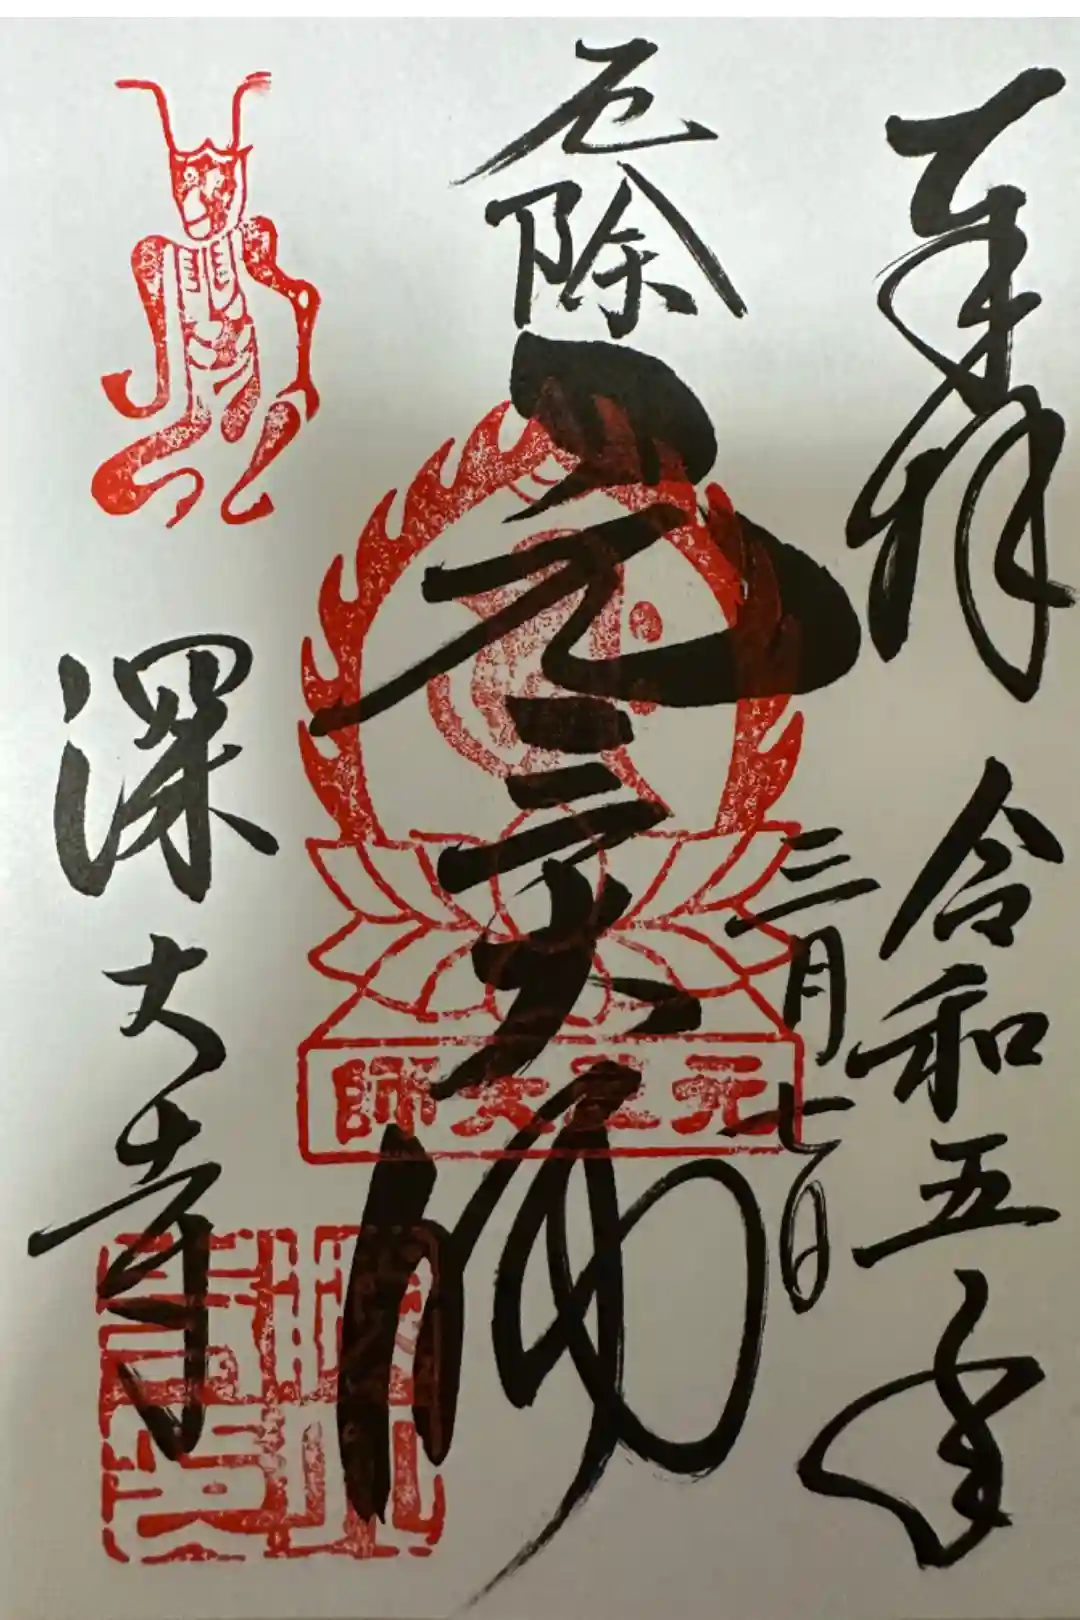 奉拝
令和五年
三月七日
厄除
元三大師
元三大師
深大寺